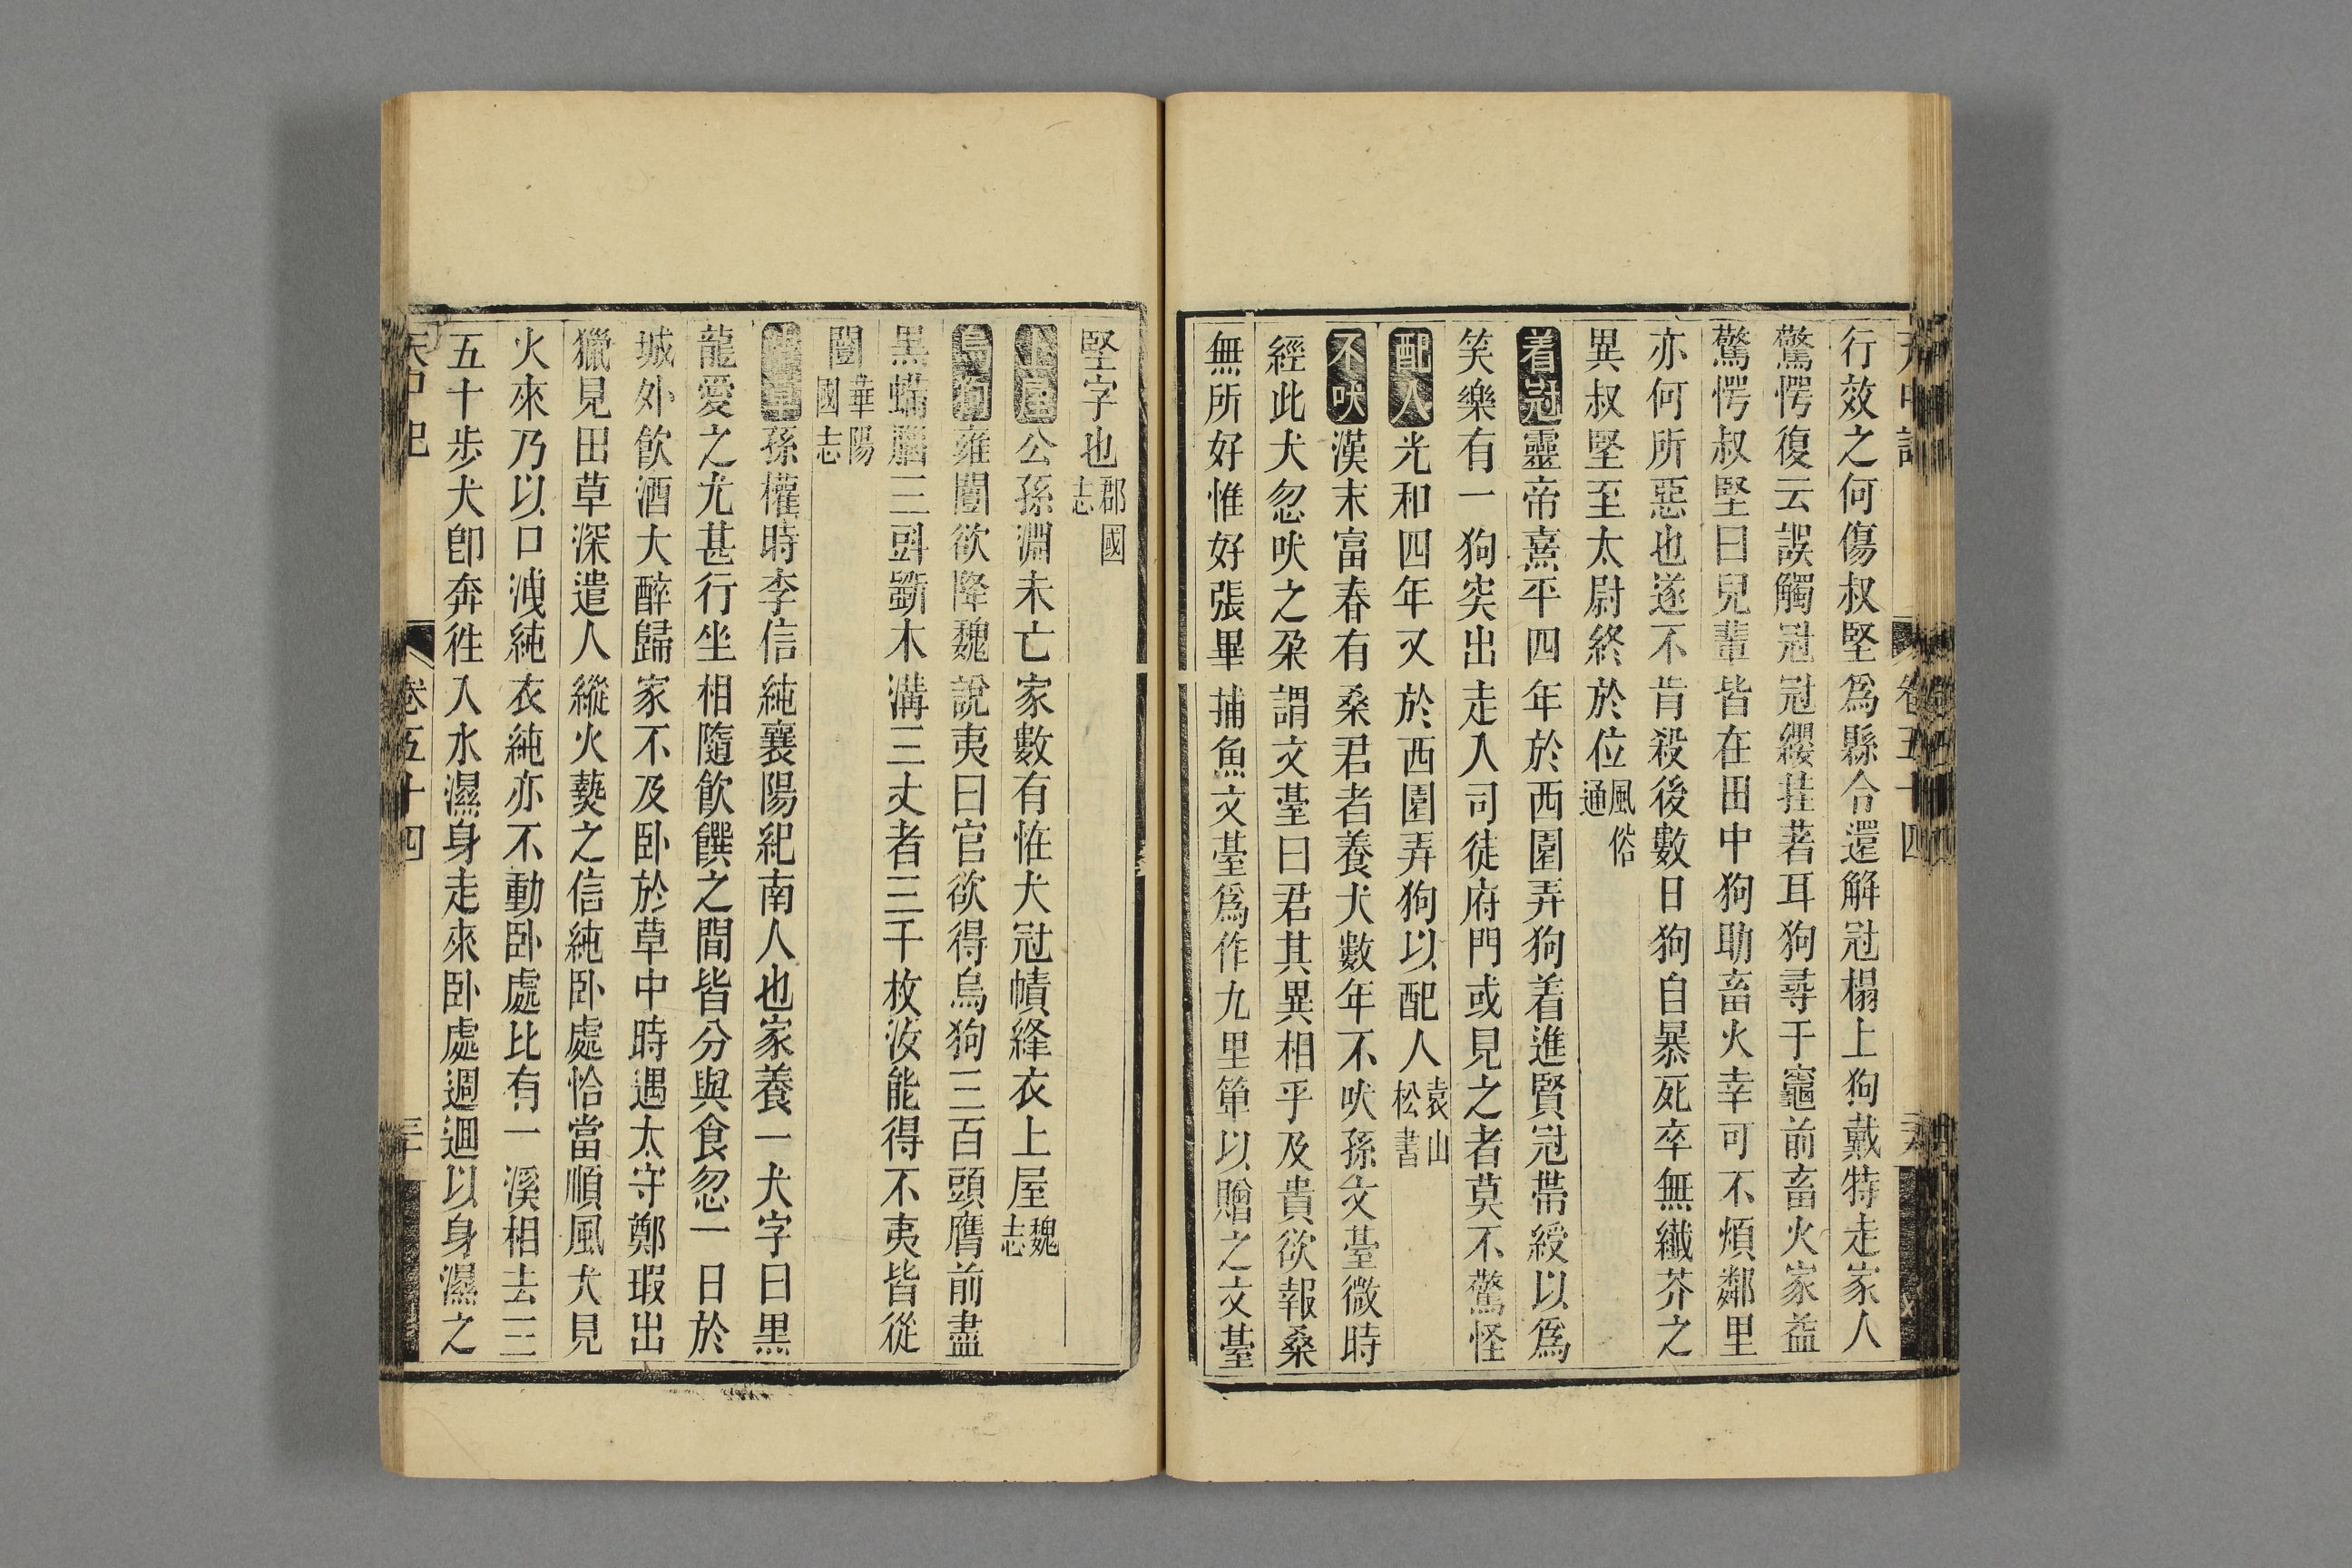 行效之何傷叔堅爲縣令還解冠榻上狗戴特走家人
驚愕復云誤觸冠冠纓挂著耳狗尋于竈前畜火家益
驚愕叔堅曰兒輩皆在田中狗助畜火幸可不煩鄰里
亦何所惡也遂不肯殺後數日狗自暴死卒無纎芥之
異叔堅至太尉終於位風俗通
着冠靈帝熹平四年於西園弄狗着進賢冠帶綬以爲
笑樂有一狗突出走入司徒府門或見之者莫不驚怪
配人光和四年又於西園弄狗以配人袁山松書
不吠漢末富春有桑君者養犬數年不吠孫文臺微時
經此犬忽吠之朶謂文臺曰君其異相乎及貴欲報桑
無所好惟好張畢捕魚文臺爲作九里箄以贈之文臺
堅字也郡國志
上屋公孫淵未亡家數有怪犬冠幘絳衣上屋魏志
烏狗雍闓欲降魏說夷曰官欲得烏狗三百頭膺前盡
黑螨腦三斗斵木溝三丈者三千枚汝能得不夷皆從
闓華陽國志
孫權時李信純襄陽紀南人也家養一犬字曰黑
龍愛之尤甚行坐相隨飮饌之間皆分與食忽一日於
城外飮酒大醉歸家不及卧於草中時遇太守鄭瑕出
獵見田草深遣人縱火爇之信純卧處恰當順風犬見
火來乃以口洩純衣純亦不動卧處比有一溪相去三
五十步犬卽奔徃入水濕身走來卧處週迴以身濕之
天中記 卷五十四